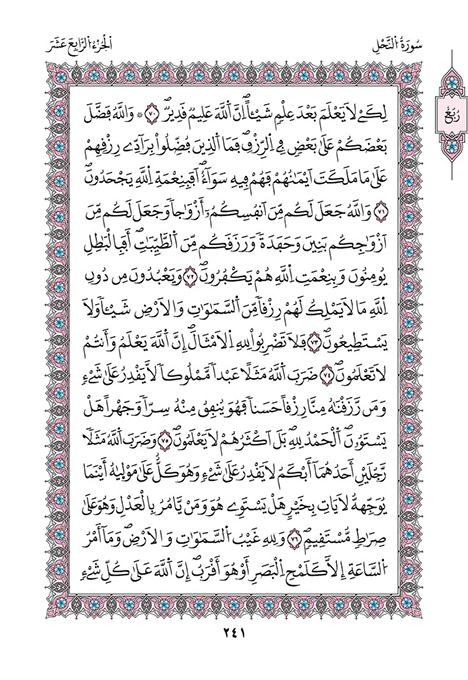 سُورَةُ النَّحْلِ
الجُزْءُ الرَّابِعَ عَشَرَ
رُبُع
لِكَےْ لَا يَعْلَمَ بَعْدَ عِلْمٖ شَيْـٔاًۖ اِنَّ اَ۬للَّهَ عَلِيمٞ قَدِيرٞۖ ٧٠ ۞ وَاللَّهُ فَضَّلَ
بَعْضَكُمْ عَلَىٰ بَعْضٖ فِے اِ۬لرِّزْقِۖ فَمَا اَ۬لذِينَ فُضِّلُواْ بِرَآدِّے رِزْقِهِمْ
عَلَىٰ مَا مَلَكَتَ اَيْمَٰنُهُمْ فَهُمْ فِيهِ سَوَآءٌۖ اَفَبِنِعْمَةِ اِ۬للَّهِ يَجْحَدُونَۖ
٧١ وَاللَّهُ جَعَلَ لَكُم مِّنَ اَنفُسِكُمُۥٓ أَزْوَٰجاٗ وَجَعَلَ لَكُم مِّنَ
اَزْوَٰجِكُم بَنِينَ وَحَفَدَةٗ وَرَزَقَكُم مِّنَ اَ۬لطَّيِّبَٰتِۖ أَفَبِالْبَٰطِلِ
يُومِنُونَ وَبِنِعْمَتِ اِ۬للَّهِ هُمْ يَكْفُرُونَۖ ٧٢ وَيَعْبُدُونَ مِن دُونِ
اِ۬للَّهِ مَا لَا يَمْلِكُ لَهُمْ رِزْقاٗ مِّنَ اَ۬لسَّمَٰوَٰتِ وَالَارْضِ شَيْـٔاٗ وَلَا
يَسْتَطِيعُونَۖ ٧٣ فَلَا تَضْرِبُواْ لِلهِ اِ۬لَامْثَالَۖ إِنَّ اَ۬للَّهَ يَعْلَمُ وَأَنتُمْ
لَا تَعْلَمُونَۖ ٧٤ ضَرَبَ اَ۬للَّهُ مَثَلًا عَبْداٗ مَّمْلُوكاٗ لَّا يَقْدِرُ عَلَىٰ شَےْءٖ
وَمَن رَّزَقْنَٰهُ مِنَّا رِزْقاً حَسَناٗ فَهُوَ يُنفِقُ مِنْهُ سِرّاٗ وَجَهْراً هَلْ
يَسْتَوُۥنَۖ اَ۬لْحَمْدُ لِلهِۖ بَلَ اَكْثَرُهُمْ لَا يَعْلَمُونَۖ ٧٥ وَضَرَبَ اَ۬للَّهُ مَثَلاٗ
رَّجُلَيْنِ أَحَدُهُمَآ أَبْكَمُ لَا يَقْدِرُ عَلَىٰ شَےْءٖ وَهُوَ كَلٌّ عَلَىٰ مَوْلَيٰهُ أَيْنَمَا
يُوَجِّههُّ لَا يَاتِ بِخَيْرٍ هَلْ يَسْتَوِے هُوَ وَمَنْ يَّامُرُ بِالْعَدْلِ وَهُوَ عَلَىٰ
صِرَٰطٖ مُّسْتَقِيمٖۖ ٧٦ وَلِلهِ غَيْبُ اُ۬لسَّمَٰوَٰتِ وَالَارْضِۖ وَمَآ أَمْرُ
اُ۬لسَّاعَةِ إِلَّا كَلَمْحِ اِ۬لْبَصَرِ أَوْ هُوَ أَقْرَبُۖ إِنَّ اَ۬للَّهَ عَلَىٰ كُلِّ شَےْءٖ
٢٤١